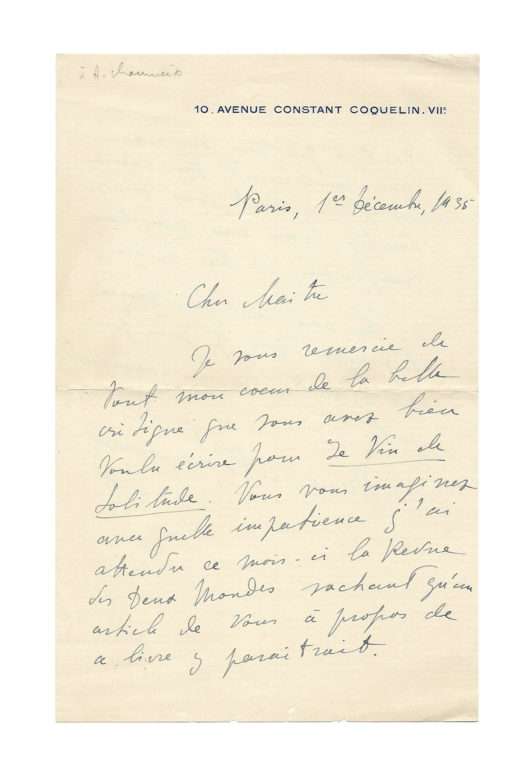 à A. Chaumeix
10. AVENUE CONSTANT COQUELIN. VIIᵉ
Paris, 1er Décembre, 1935
Cher Maître
Je vous remercie de
tout mon coeur de la belle
critique que vous avez bien
voulu écrire pour Le Vin de
Solitude. Vous vous imaginez
avec quelle impatience j'ai
attendu ce mois-ci la Revue
des Deux Mondes sachant qu'un
article de vous à propos de
ce livre y paraîtrait.